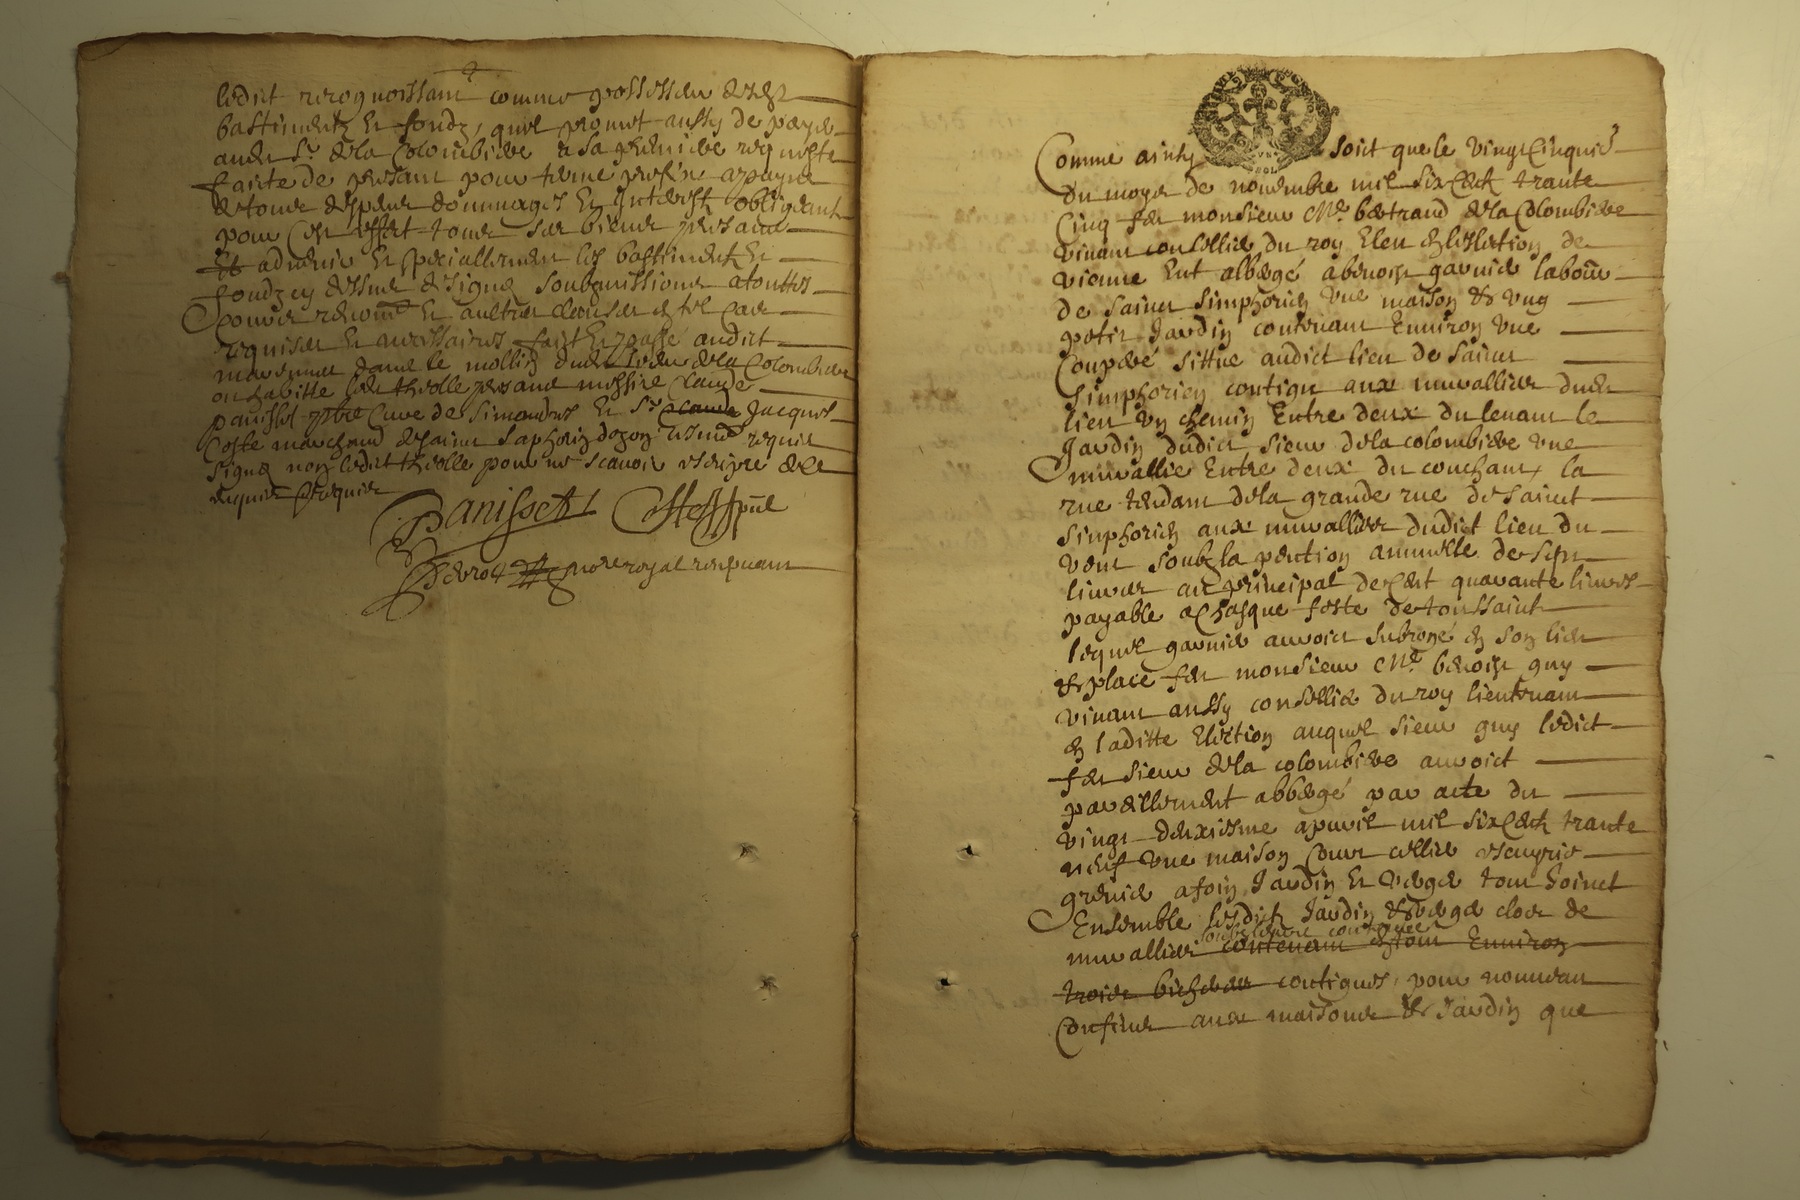 ledict recognoissant comme possesseur desd
bastimentz et fondz, quil promet aussy de payer
audit Sr de la Colombiere a sa premiere requeste
faicte de presant pour terme prefix a payne
de tous despens dommages et interestz obligeant
pour cest effect tous ses biens presans
et advenir et speciallement les bastimentz et
fondz cy dessus designés soubzmissions a touttes
cours renonons et aultres clauses en tel cas
requises et necessaires faict et passé audict
marennes dans le mollin dudit sieur de la Colombiere
ou habitte ledit thiolle presans messire Claude
panisset pbre cure de Simandres et Sr Jacques
Coste marchand de sainct Saphorin dozon tesmoins requis
signés non ledict thiolle pour ne scavoir escripre de ce
enquis et requis
Panisset Coste
nore royal recepvant
Comme ainsy soict que le vingtcinquie
du moys de novembre mil six centz trante
cinq feu monsieur Me bertrand de la Colombiere
vivant conseillier du roy Eleu en leslection de
vienne eut albergé a benoist garnier labour
de sainct simphorien une maison et ung
petit jardin contenant environ une
couperé sittue audict lieu de sainct
simphorien contigu aux murallies dudit
lieu un chemin entre deux du levant le
jardin dudict sieur de la colombiere une
murallie entre deux du couchant, la
rue tendant de la grande rue de sainct
simphorien aux murallies dudict lieu du
vent soubz la pention annuelle de sept
livres au principal de cent quarante livres
payable a chasque feste de toussainctz
lequel garnier auroict subrogé en son lieu
et place feu monsieur Me benoist guy
vivant aussy conseillier du roy lieutenant
en laditte election auquel sieur guy ledict
feu sieur de la colombiere auroict
pareillement abbergé par acte du
vingt deuxiesme apvril mil six centz trante
neuf une maison cour cellier escuyrie
grenier a foin, jardin et verger tout joinct
ensemble lesdictz jardin et verger clos de
murallies contenant en tout environ
trois bicherees contigues, pour nouveau
confins aux maisons et jardin que